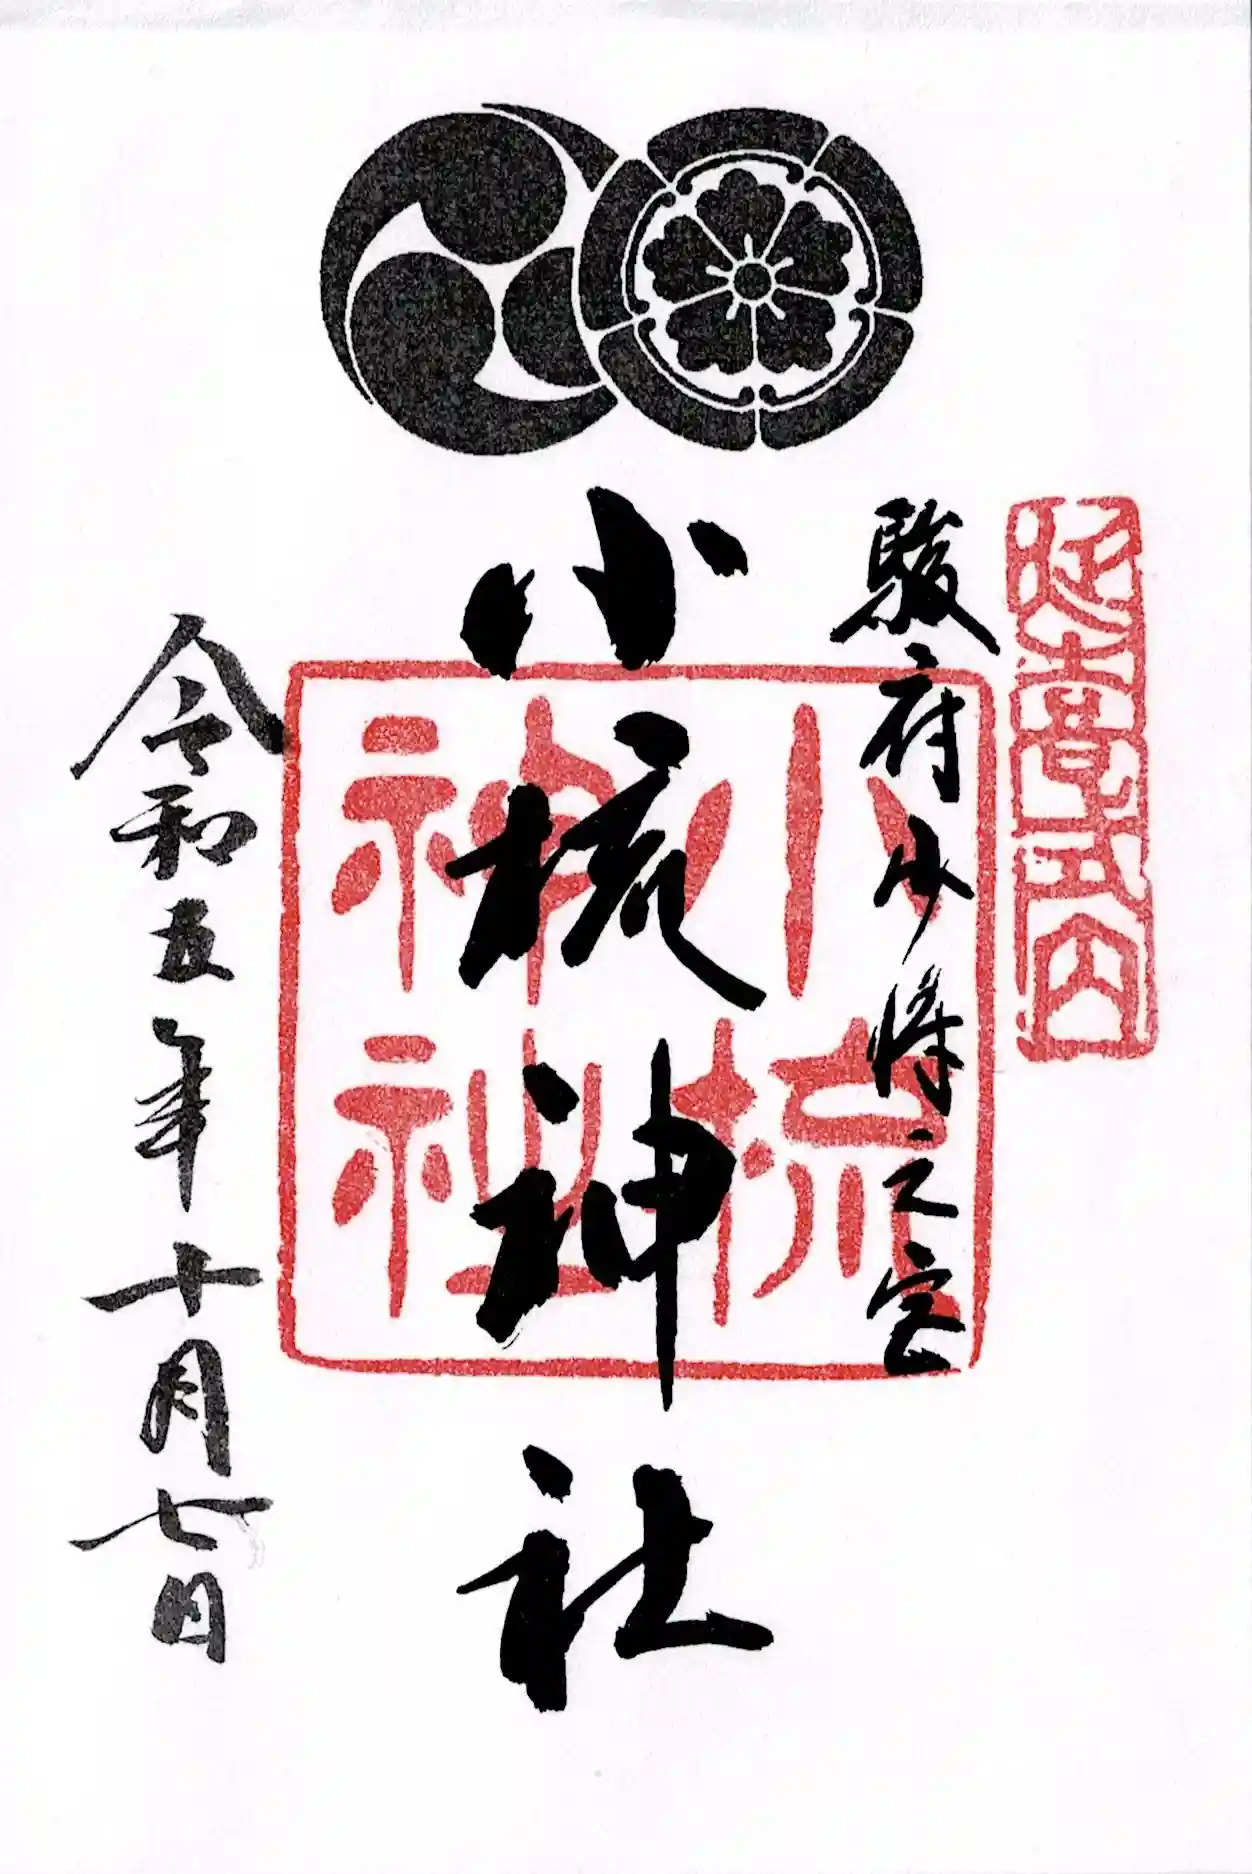 延喜式内
駿府少将之宮
小梳神社
小梳
神社
令和五年十月七日